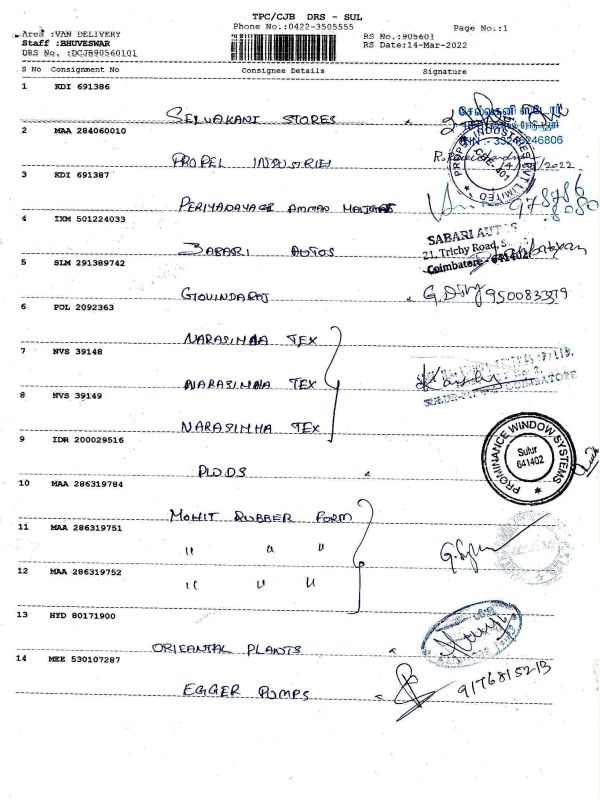 TPC/CJB DRS - SUL
Phone No.:0422-3505555
Page No.:1
Area :VAN DELIVERY
Staff :BHUVESWAR
DRS No. :DCJB90560101
RS No.:905601
RS Date:14-Mar-2022
S No Consignment No Consignee Details Signature
1 KDI 691386
SELVAKANI STORES
செல்வகனி ஸ்டோர்
2 MAA 284060010
PROPEL INDUSTRIES
3 KDI 691387
PERIYANAYAGI AMMAN
4 IXM 501224033
SABARI AUTOS
SABARI AUTOS
21, Trichy Road, S
Coimbatore - 641402
5 SLM 291389742
GOVINDARAJ
9500833319
6 POL 2092363
NARASIMHA TEX
7 NVS 39148
NARASIMHA TEX
8 NVS 39149
NARASIMHA TEX
COIMBATORE
9 IDR 200029516
PWDS
PROMINANCE WINDOW SYSTEMS
Sulur
641402
10 MAA 286319784
MOHIT RUBBER FORM
11 MAA 286319751
" " "
12 MAA 286319752
" " "
13 HYD 80171900
ORIEANTAL PLANTS
14 MKE 530107287
EGGER PUMPS
9176815213